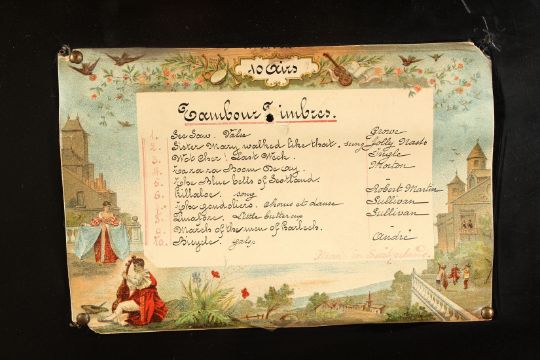 10 Airs
Tambour Timbres.
1. See Saw. Valse Crowe
2. Sister Mary walked like that. song Jolly Nash
3. Wot Cher! Last Week. Ingle
4. Ta ra ra Boom De Ay. Morton
5. The Blue bells of Scotland.
6. Killaloe. song Robert Martin
7. The Gondoliers. Chorus et danse Sullivan
8. Pinafore. Little buttercup Sullivan
9. March of the men of Harlech.
10. Bicycle. galop André
Made in Switzerland.